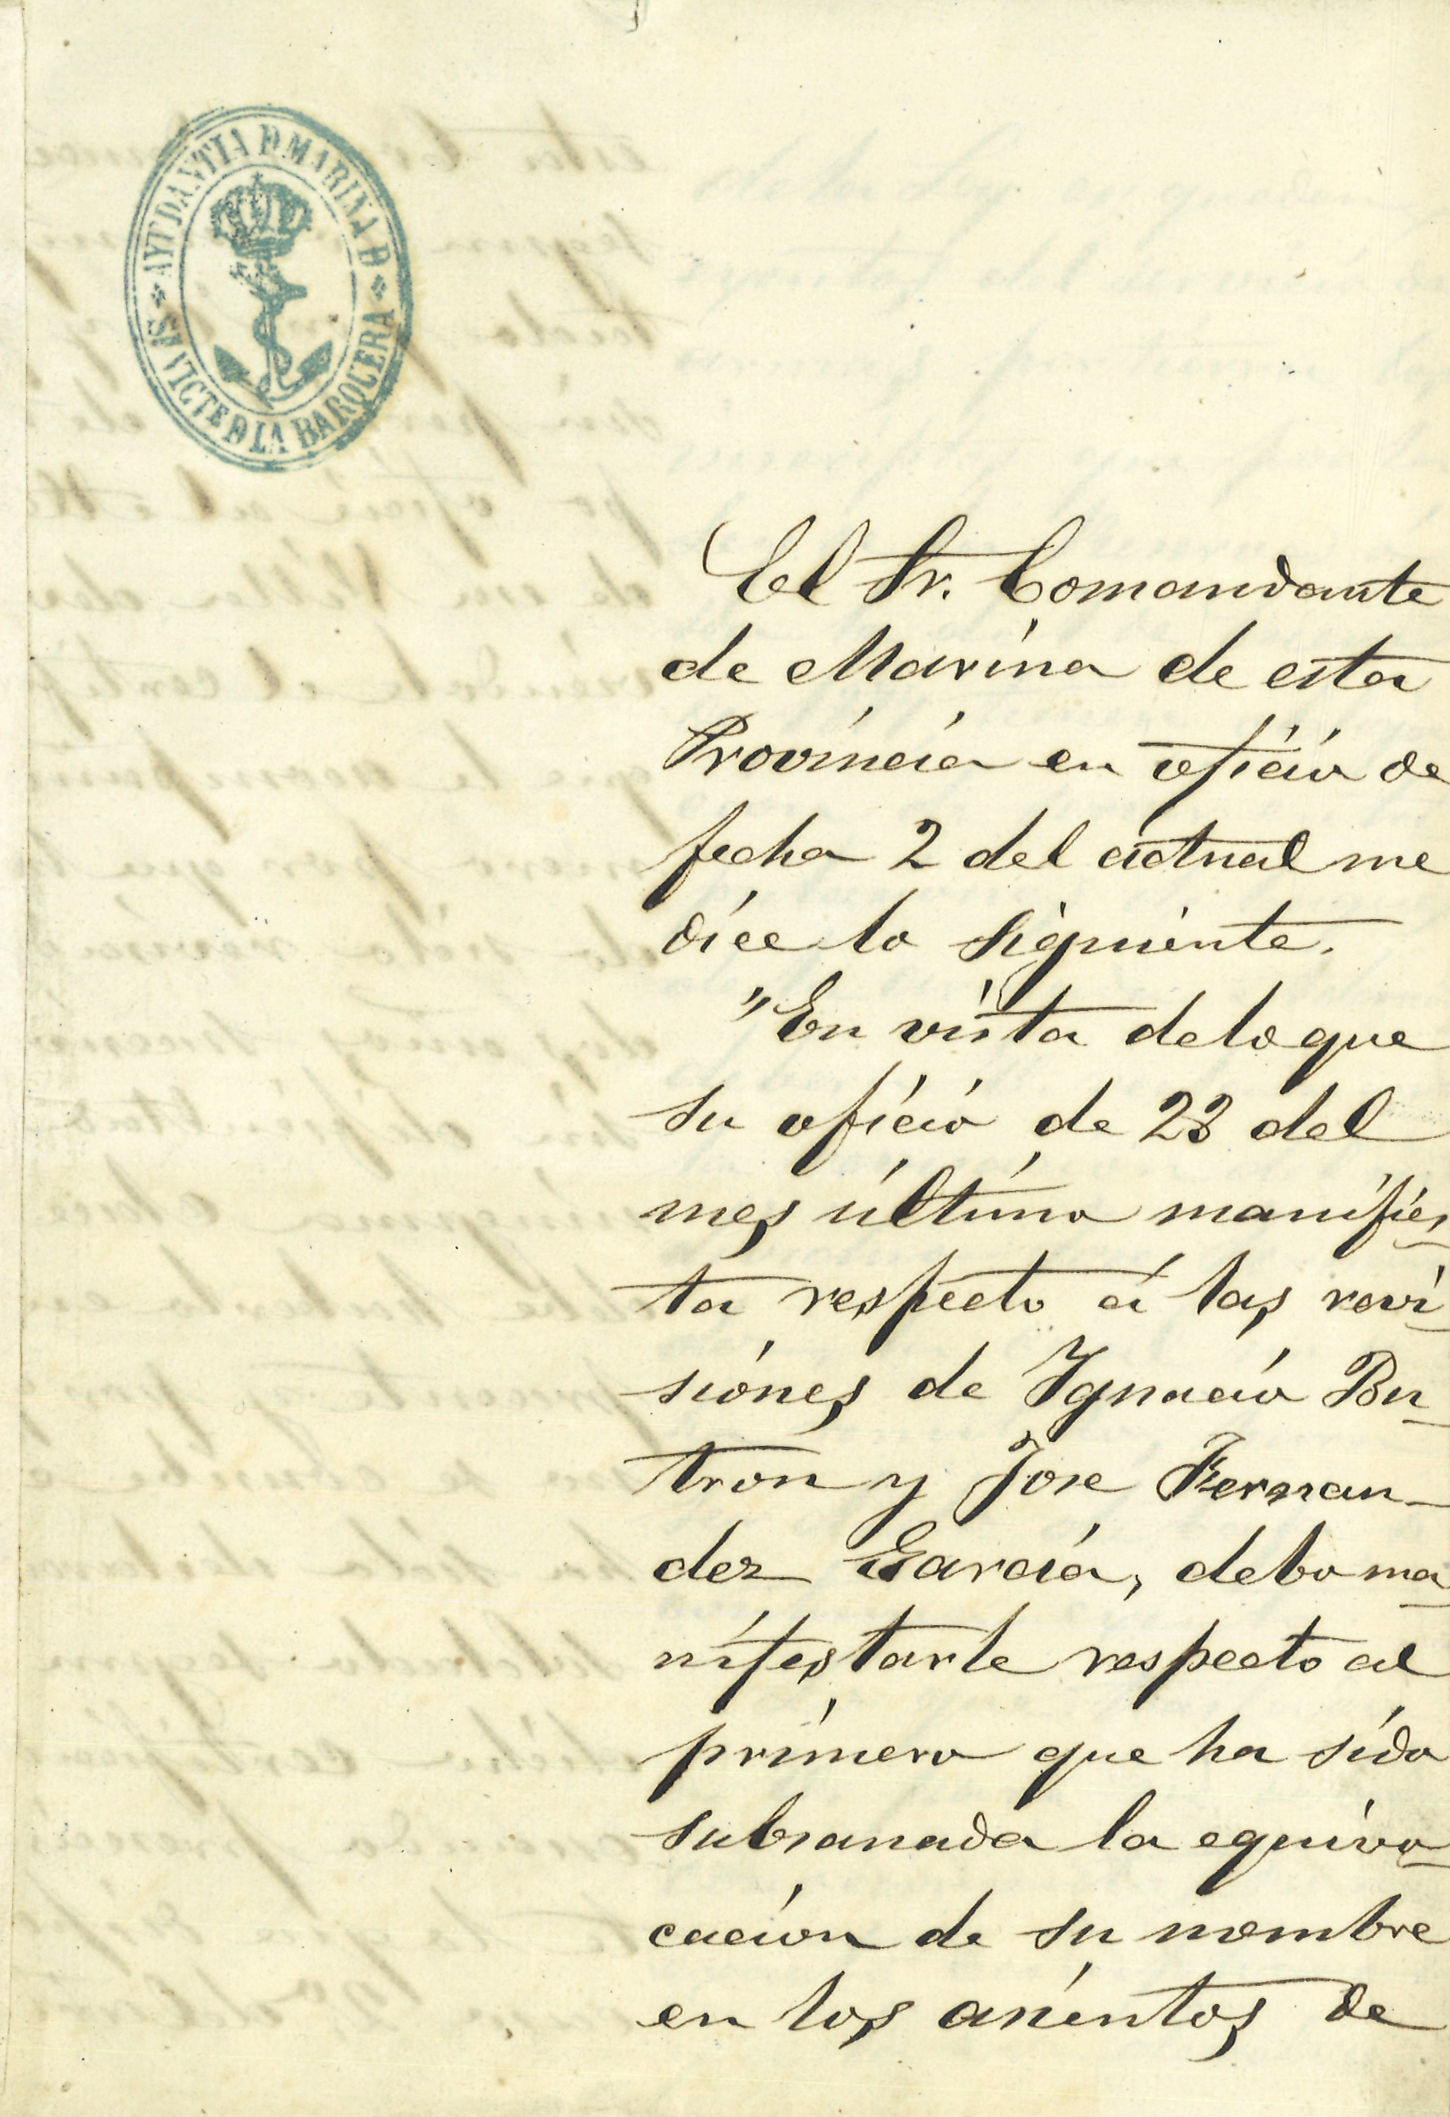 AYUDANTIA D MARINA D
Sn VICTE D LA BARQUERA
El Sr. Comandante
de Marina de esta
Provincia en oficio de
fecha 2 del actual me
dice lo siguiente.
"En vista de lo que
su oficio de 23 del
mes último manifies
ta respecto á las revi
siones de Ignacio Bu
tron y Jose Fernan
dez García, debo ma
nifestarle respecto al
primero que ha sido
subsanada la equivo
cacion de su nombre
en los asientos de